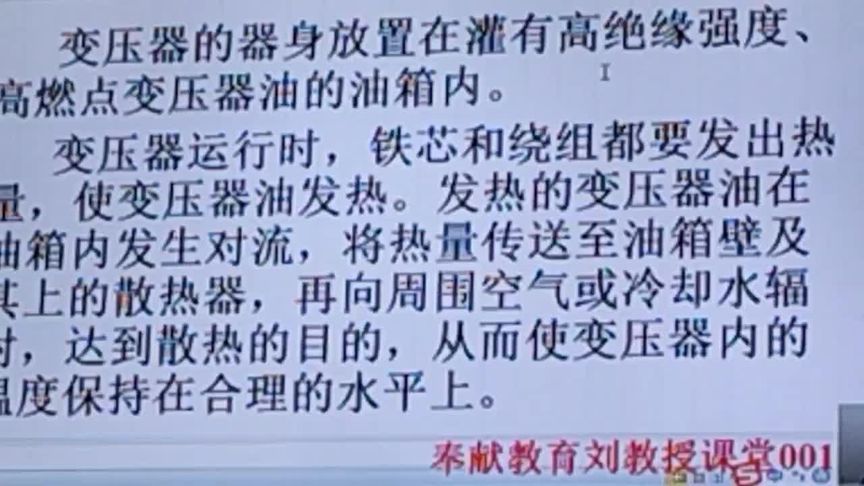 变压器的器身放置在灌有高绝缘强度、
高燃点变压器油的油箱内。
变压器运行时，铁芯和绕组都要发出热
量，使变压器油发热。发热的变压器油在
油箱内发生对流，将热量传送至油箱壁及
其上的散热器，再向周围空气或冷却水辐
射，达到散热的目的，从而使变压器内的
温度保持在合理的水平上。
奉献教育刘教授课堂001